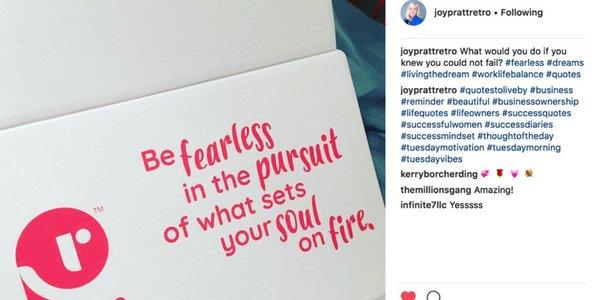 Be fearless
in the pursuit
of what sets
your soul
on fire.
TM
r
joyprattretro • Following
joyprattretro What would you do if you
knew you could not fail? #fearless #dreams
#livingthedream #worklifebalance #quotes
joyprattretro #quotestoliveby #business
#reminder #beautiful #businessownership
#lifequotes #lifeowners #successquotes
#successfulwomen #successdiaries
#successmindset #thoughtoftheday
#tuesdaymotivation #tuesdaymorning
#tuesdayvibes
kerryborcherding 💞 🌹 💓 💐
themillionsgang Amazing!
infinite7llc Yesssss